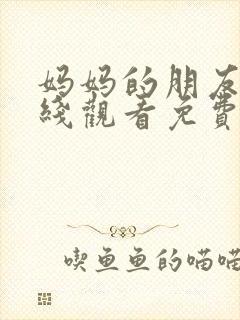 妈妈的朋友
綫觀看免費
喫鱼鱼的喵喵